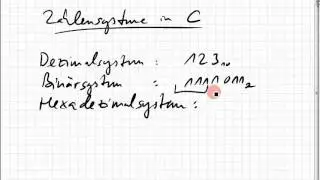 Zahlensysteme in C
Dezimalsystem : 123₁₀
Binärsystem : 1111011₂
Hexadezimalsystem :